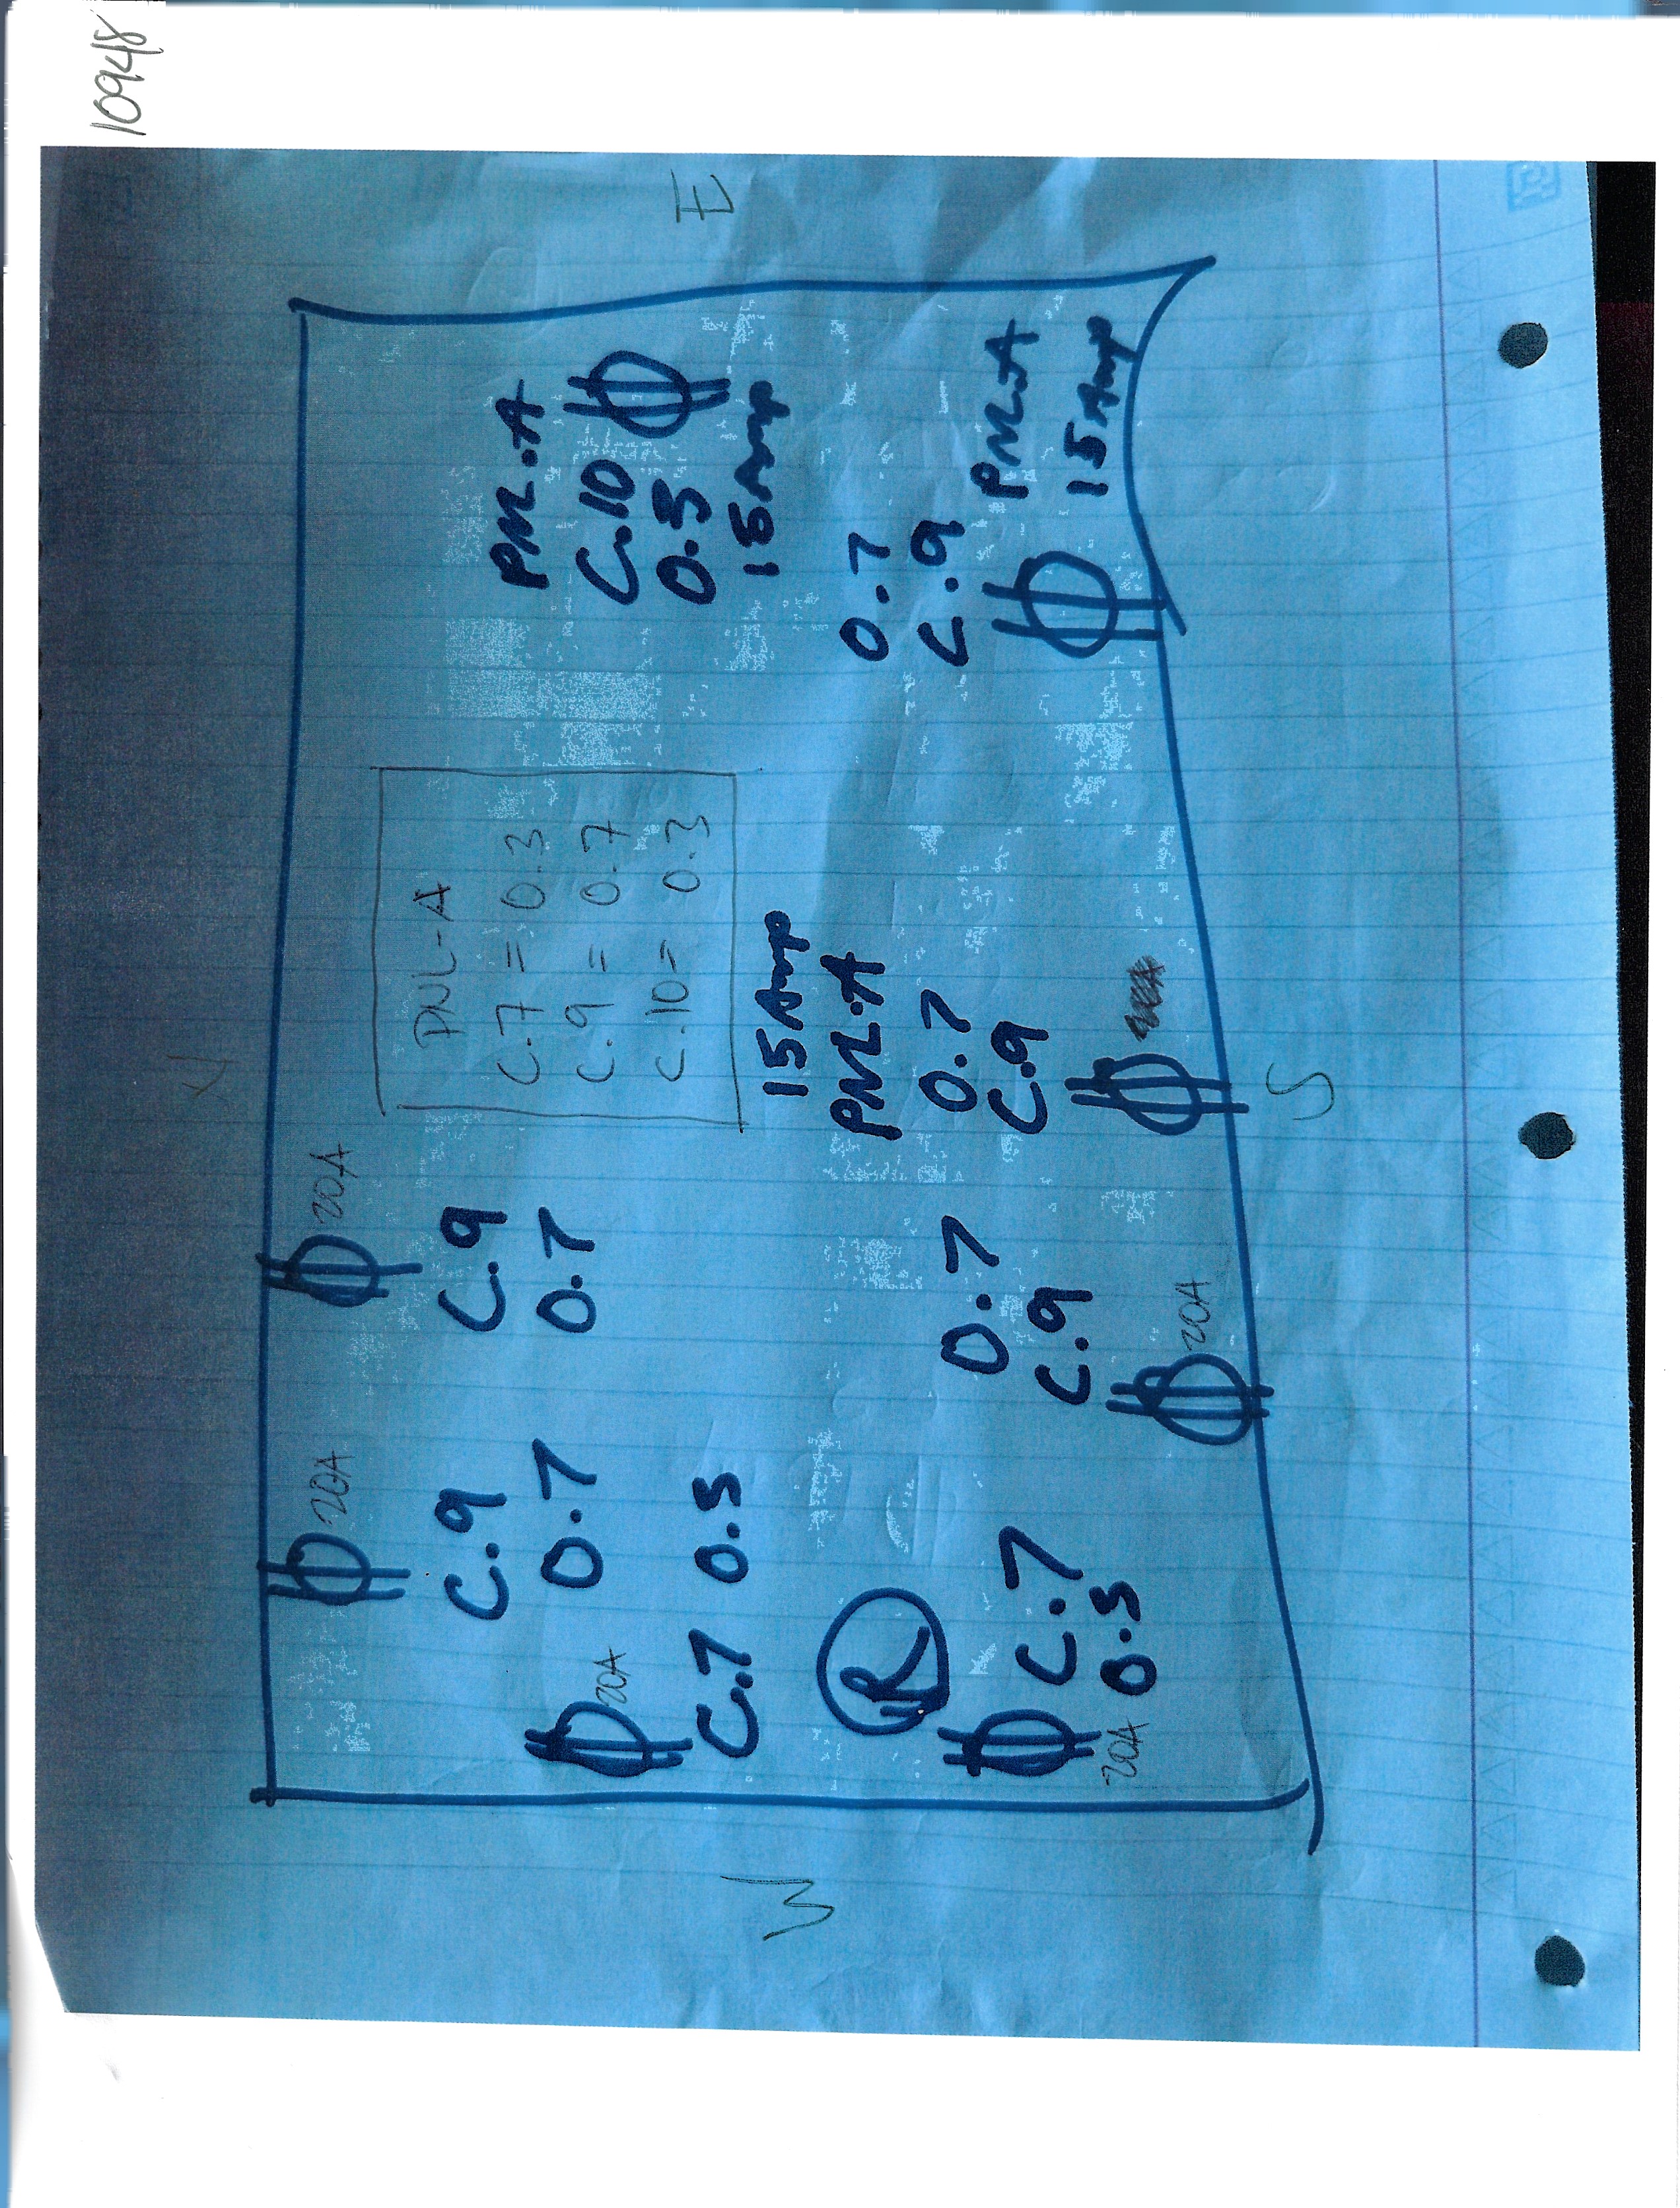 10948
N
20A
C.9
0.7
20A
C.9
0.7
PNL-A
C.7 = 0.3
C.9 = 0.7
C.10 = 0.3
PNL.A
C.10
0.5
15 Amp
E
W
20A
C.7 0.5
R
C.7
0.5
20A
0.7
C.9
20A
15 Amp
PNL.A
0.7
C.9
0.7
C.9
PNL.A
15 Amp
S